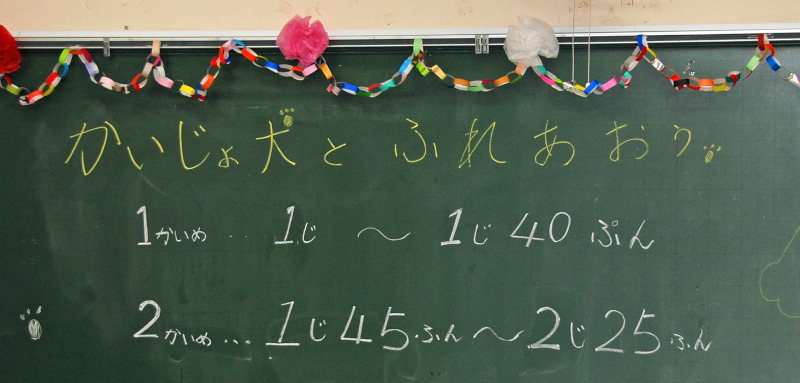 かいじょ犬とふれあおう
1かいめ‥1じ〜1じ40ぷん
2かいめ…1じ45ふん〜2じ25ふん